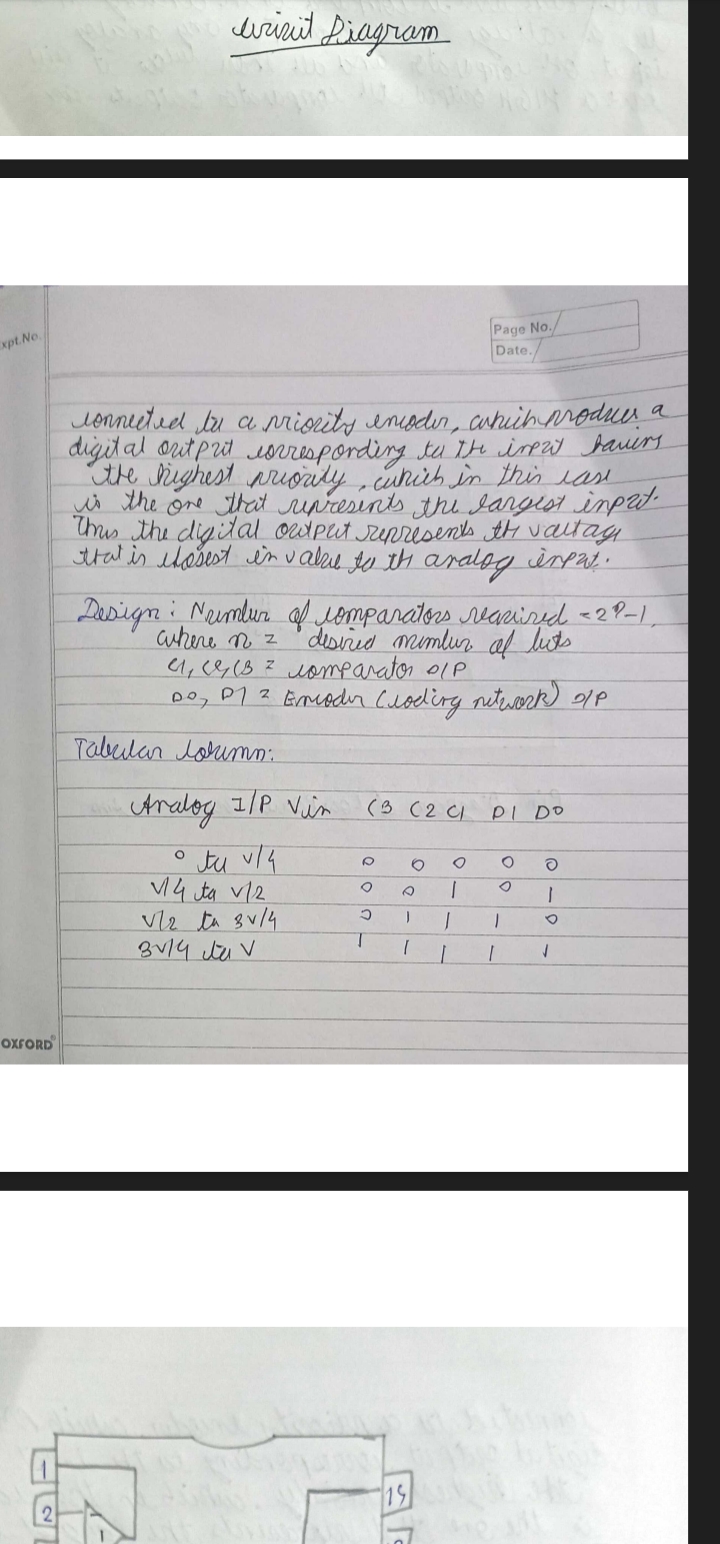 Circuit Diagram
Expt.No.
Page No.
Date.
connected to a priority encoder, which produces a
digital output corresponding to the input having
the highest priority, which in this case
is the one that represents the largest input.
Thus the digital output represents the voltage
that is closest in value to the analog input.
Design: Number of comparators required = 2^n-1,
where n = desired number of bits
C1, C2, C3 = comparator O/P
D0, D1 = Encoder (coding network) O/P
Tabular Column:
Analog I/P Vin C3 C2 C1 D1 D0
0 to V/4 0 0 0 0 0
V/4 to V/2 0 0 1 0 1
V/2 to 3V/4 0 1 1 1 0
3V/4 to V 1 1 1 1 1
OXFORD
1
2